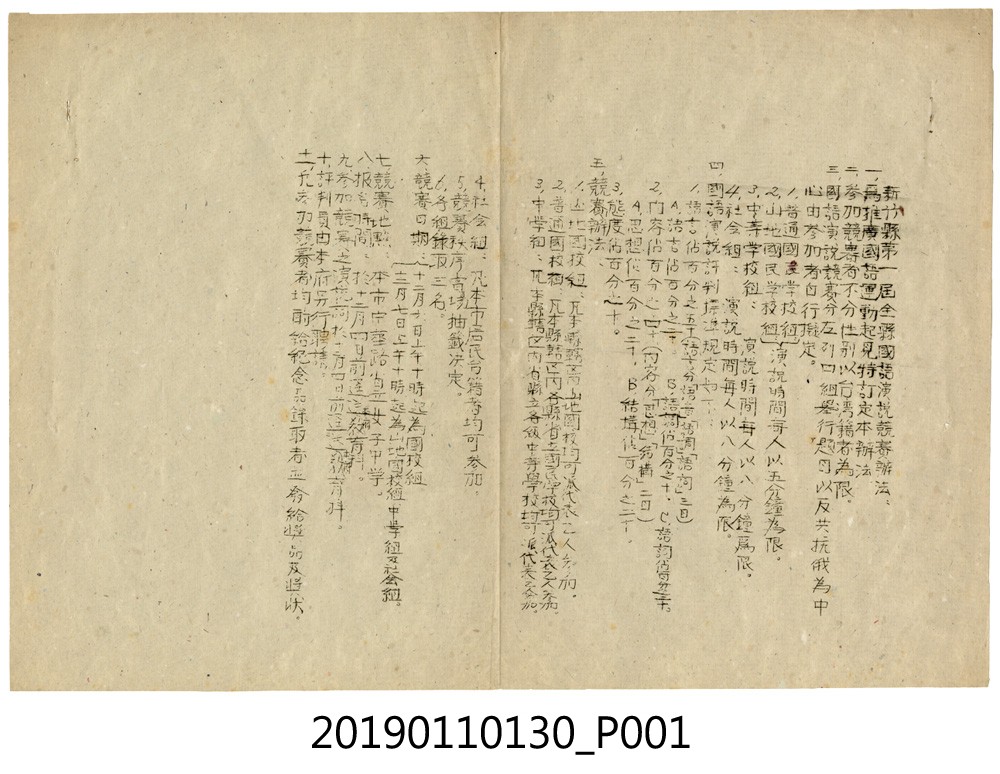 新竹縣第一屆全縣國語演說競賽辦法：
一、為推廣國語運動起見特訂定本辦法
二、參加競賽者不分性別以台灣籍者為限。
三、國語演說競賽分左列四組舉行題目以反共抗俄為中
心由參加者自行擬定。
1.普通國民學校組
2.山地國民學校組 演說時間每人以五分鐘為限。
3.中等學校組： 演說時間每人以八分鐘為限。
4.社會組： 演說時間每人以八分鐘為限。
四、國語演說評判標準規定如下：
1.語言佔百分之五十(語言分語音語調「語詞」三目)
A.語言佔百分之二十。 B.語調佔百分之十。 C.語詞佔百分之二十。
2.內容佔百分之四十(內容分思想「結構」二目)
A.思想佔百分之二十。 B.結構佔百分之二十。
3.態度佔百分之十。
五、競賽辦法：
1.山地國校組：凡本縣轄區內山地國校均可派代表乙人參加。
2.普通國校組：凡本縣轄區內各縣省立國民學校均可派代表乙人參加。
3.中學組：凡本縣轄區內省縣立各級中等學校均可派代表乙人參加。
4.社會組：凡本市居民台籍者均可參加。
5.競賽秩序當場抽籤決定。
6.各組錄取三名。
六、競賽日期：十二月六日上午十時起為國校組
十二月七日上午十時起為山地國校組中等組及社會組。
七、競賽地點：本市中華路省立女子中學。
八、報名時間：於十二月四日前逕送教育科。
九、參加競賽之演說詞於十二月四日前逕送教育科。
十、評判員由本府另行聘請。
十一、凡參加競賽者均酌給紀念品錄取者並發給獎品及獎狀。
20190110130_P001